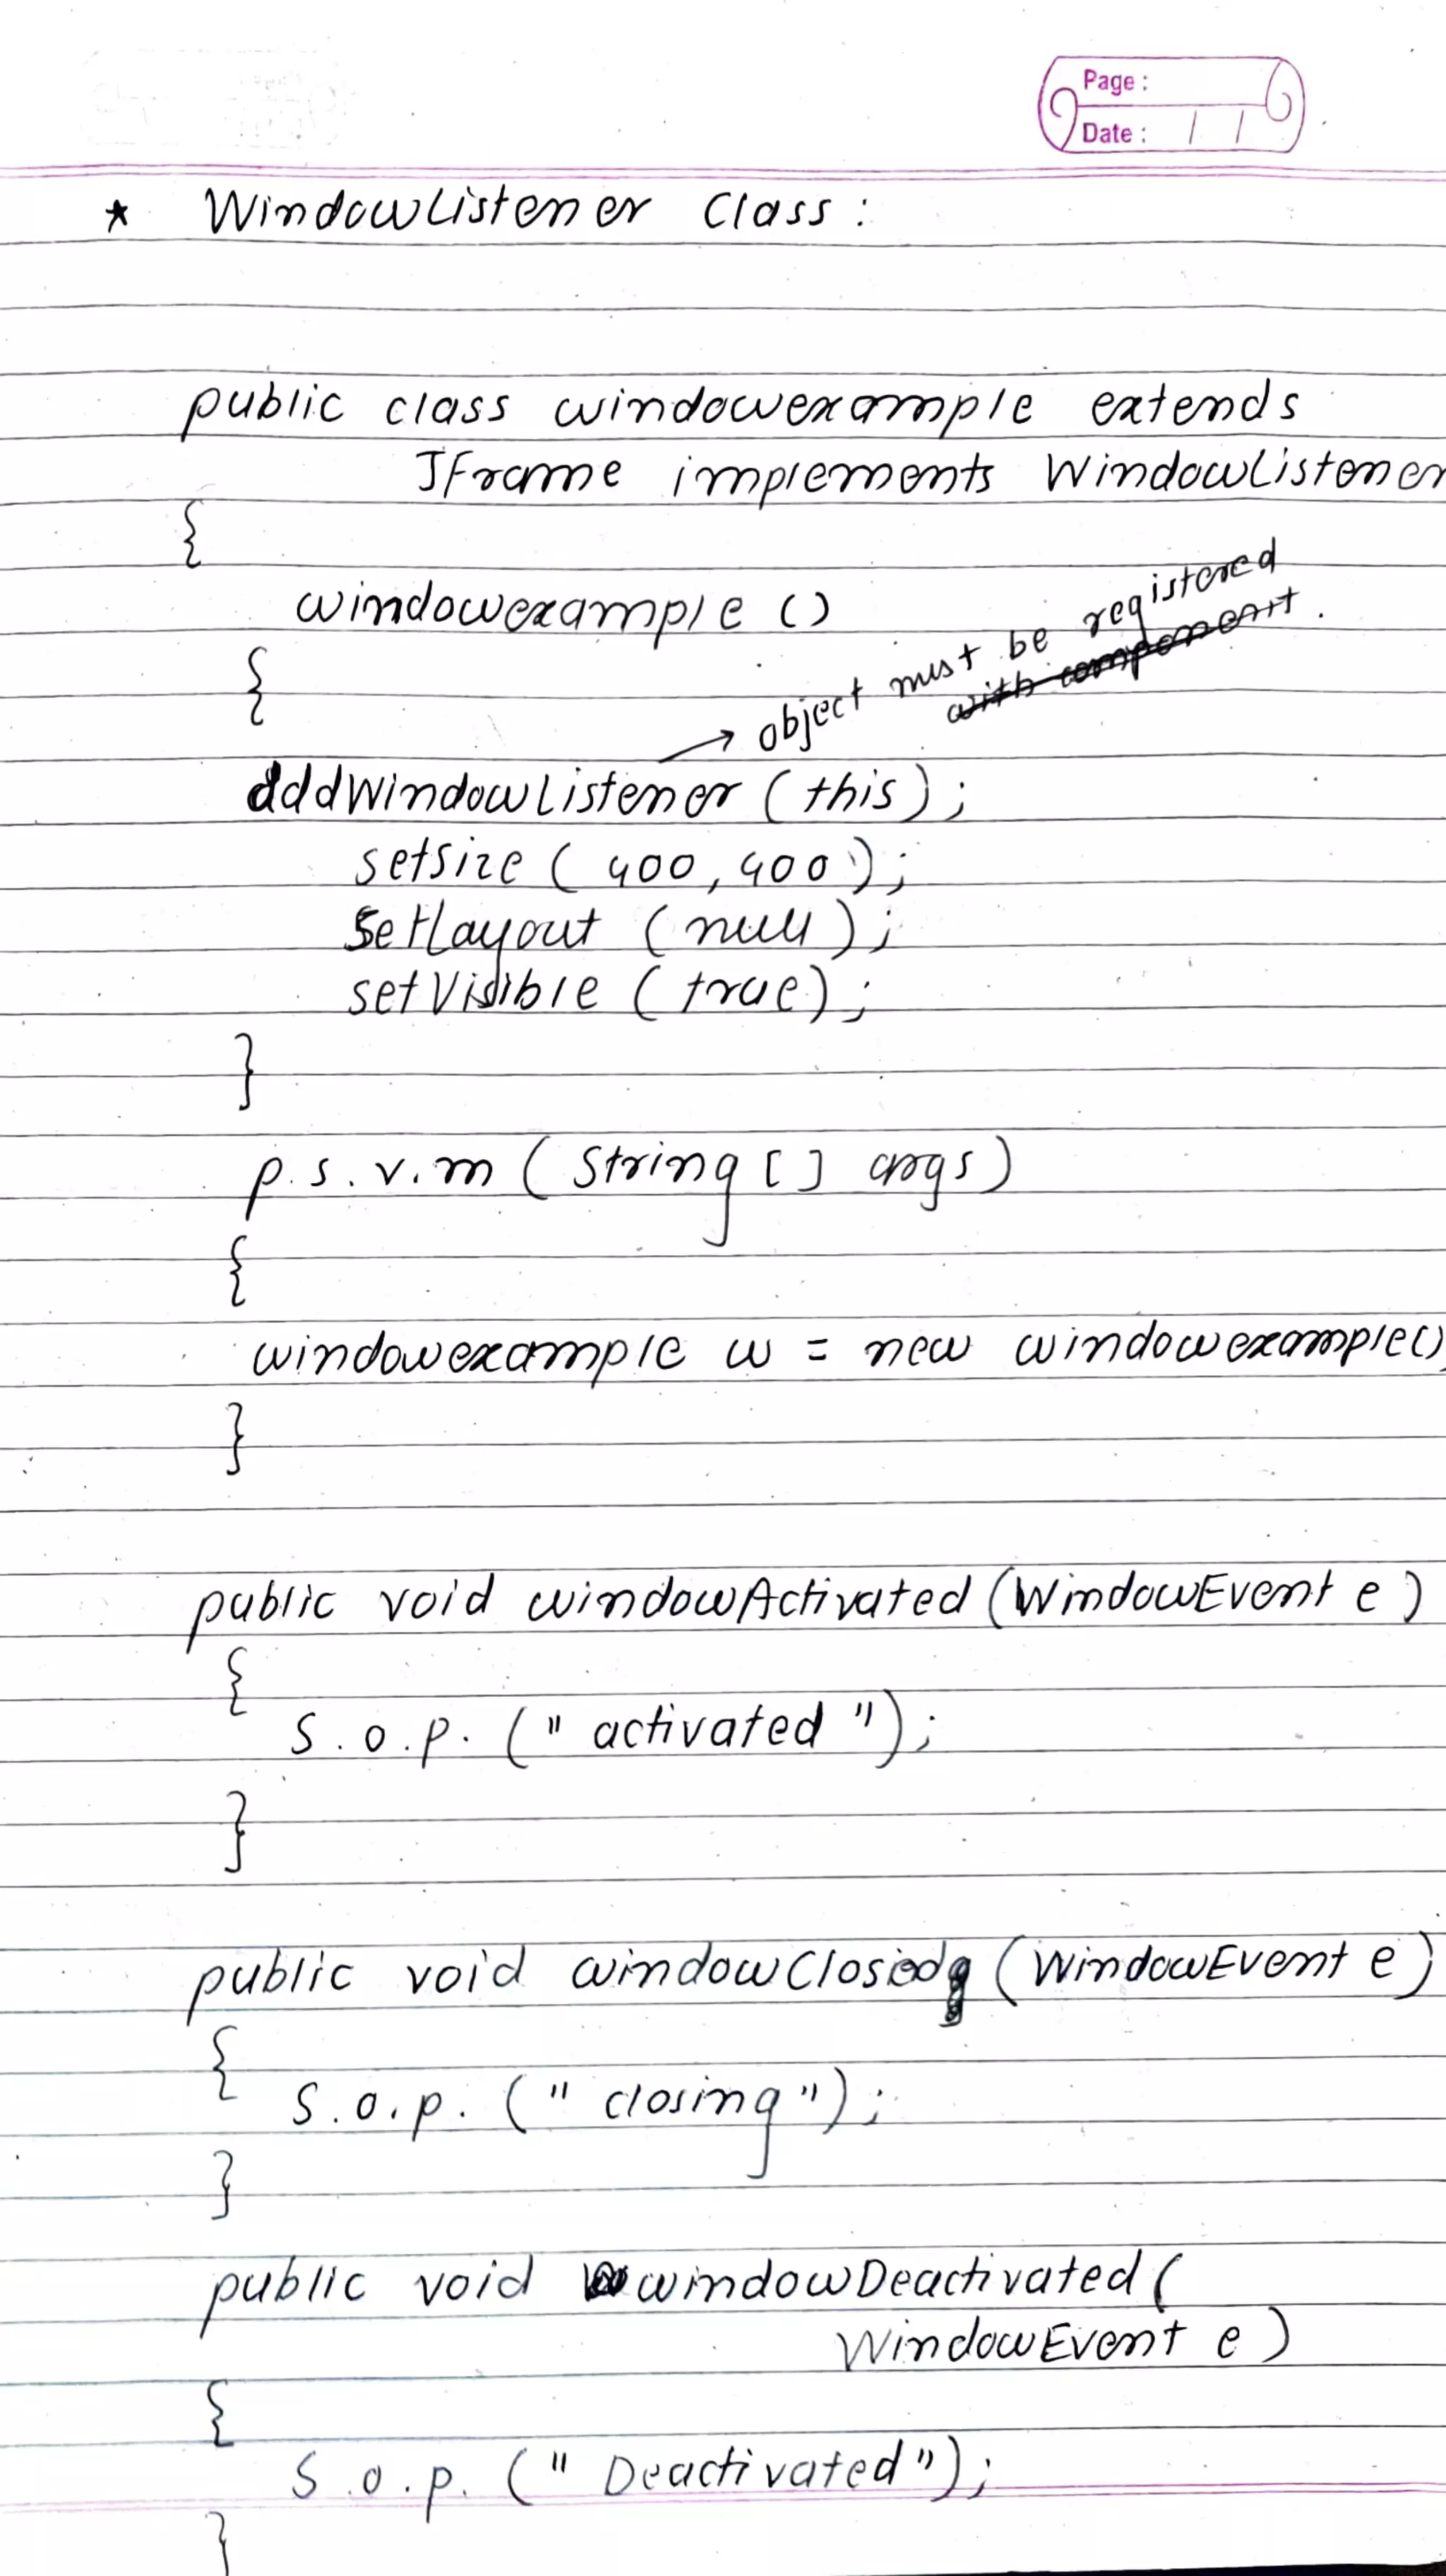 Page :
Date : / /
* WindowListener Class :
public class windowexample extends
JFrame implements WindowListener
{
windowexample ()
{
→ object must be registered
with component.
addWindowListener (this);
setsize ( 400, 400 );
SetLayout (null);
setVisible (true);
}
p.s.v.m ( String [ ] args)
{
windowexample w = new windowexample()
}
public void windowActivated (WindowEvent e)
{
S.o.p. (" activated ");
}
public void windowClosing (WindowEvent e)
{
S.o.p. (" closing ");
}
public void windowDeactivated (
WindowEvent e)
{
S.o.p. (" Deactivated");
}